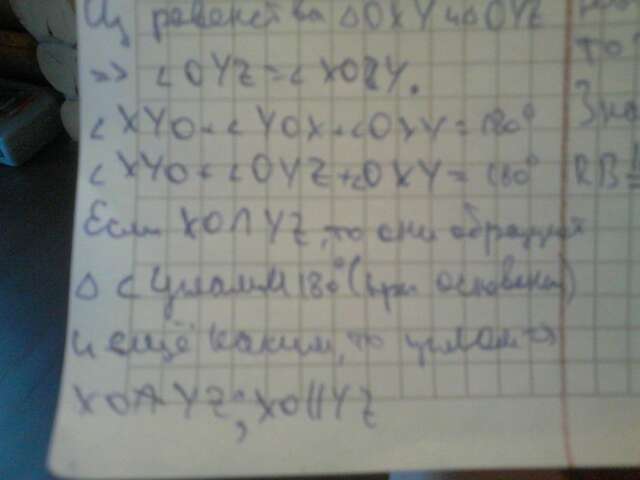 Из равенства △OXY и △OYZ
=> ∠OYZ = ∠XOY.
∠XYO + ∠YOX + ∠OXY = 180°
∠XYO + ∠OYZ + ∠OXY = 180°
Если XO∩YZ, то они образуют
△ с углами 180° (при основании)
и ещё каким, то углом =>
XO∩YZ; XO||YZ
то
RB